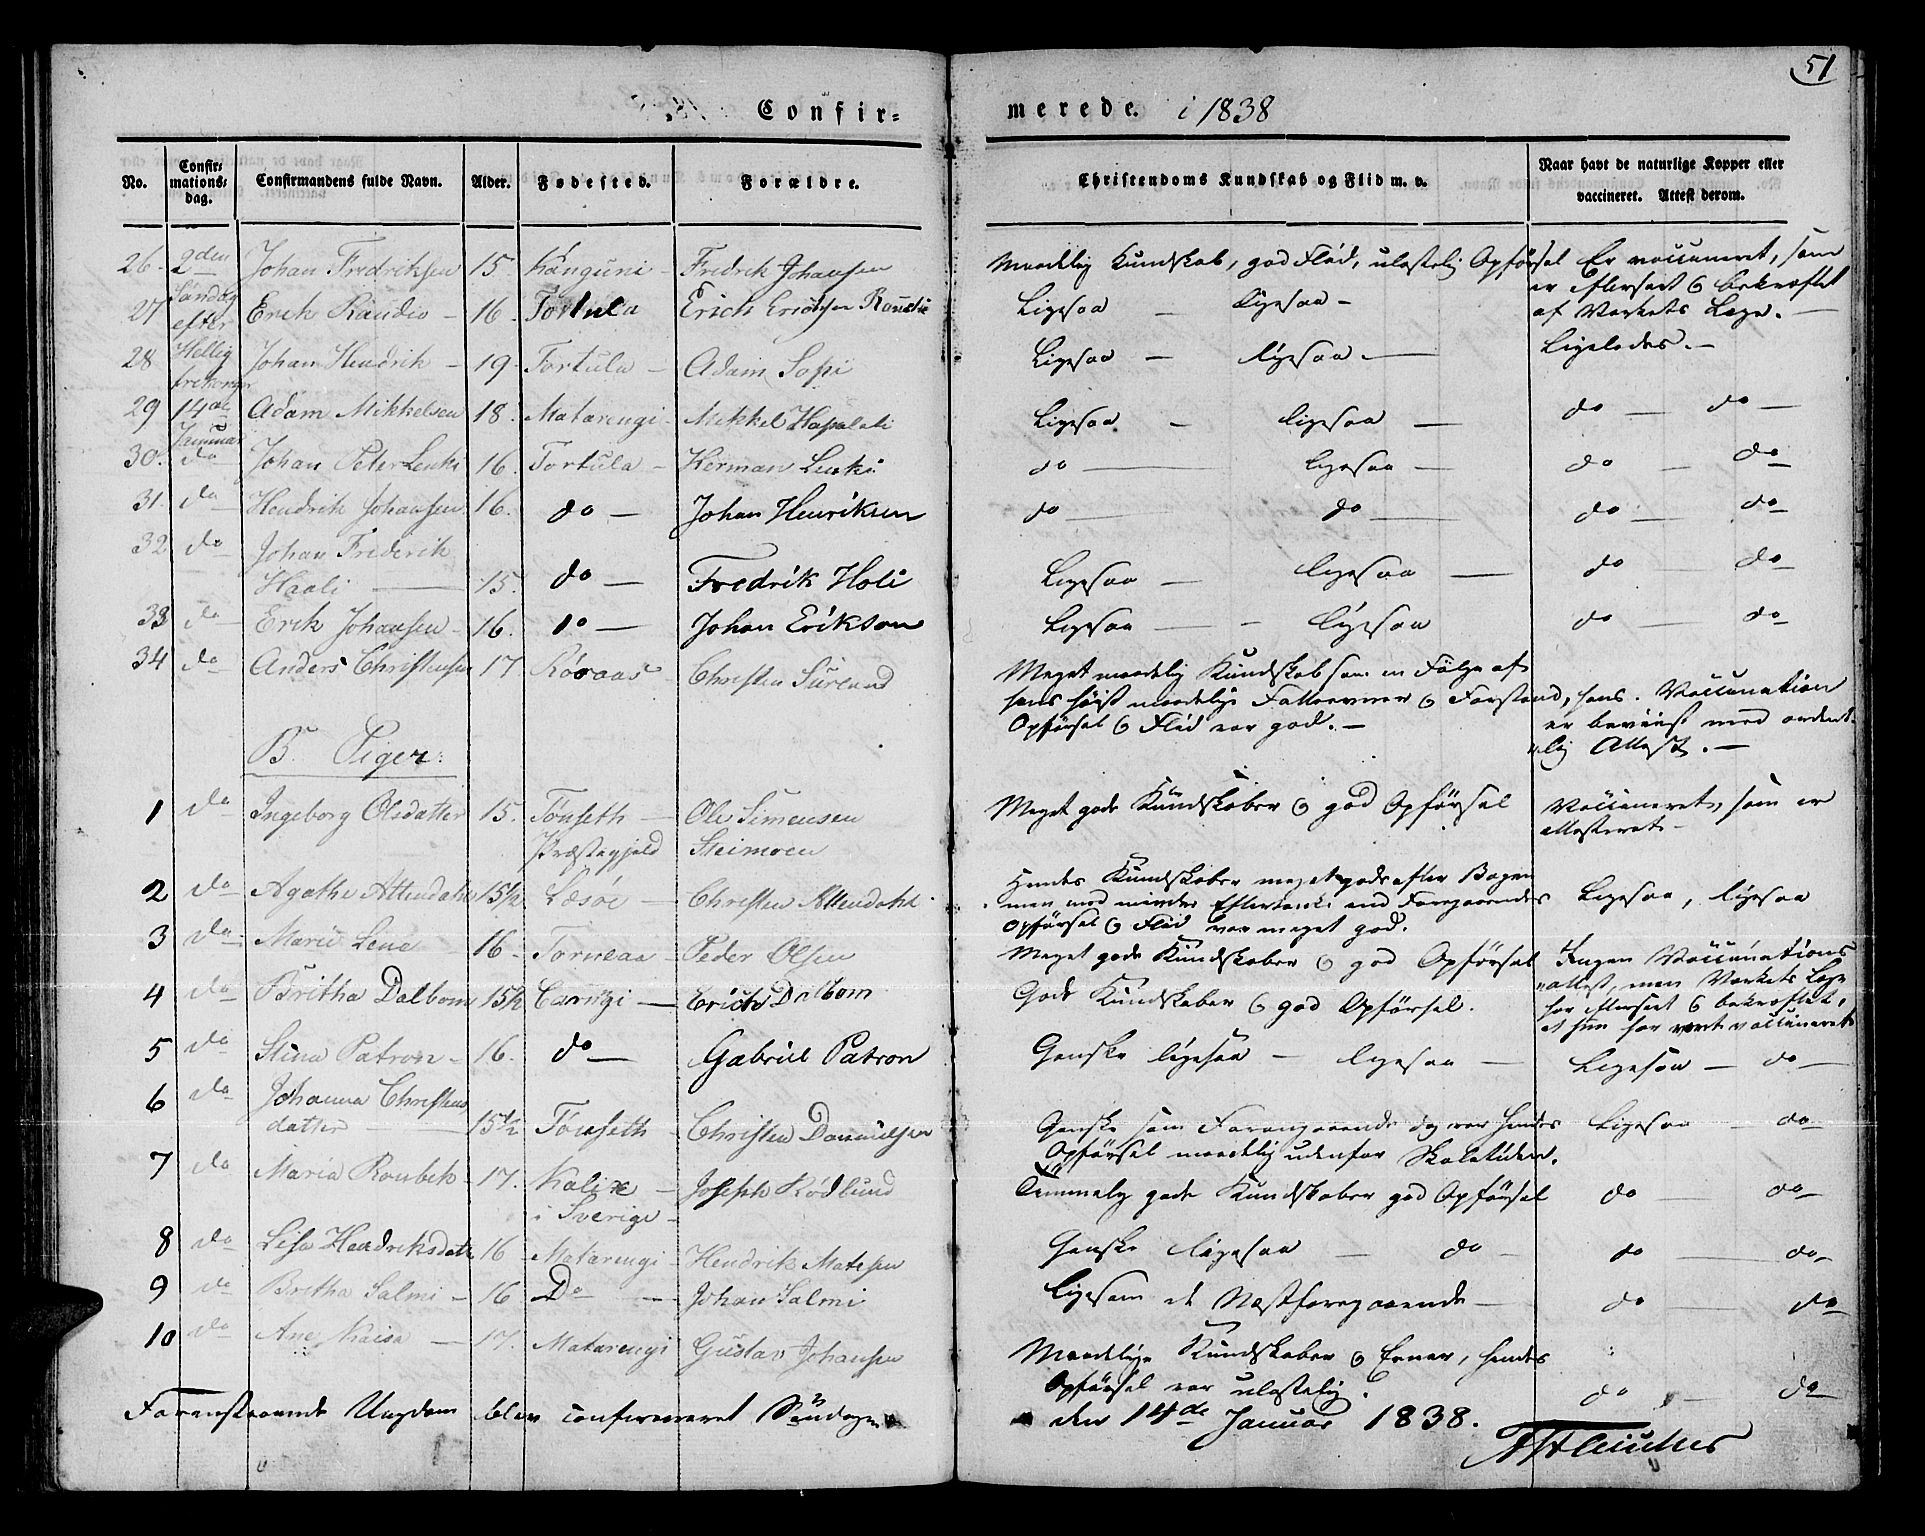 51
Confir- merede. i 1838
No.
Confir-
mations-
dag.
Confirmandens fulde Navn.
Alder.
Fødested.
Forældre.
Christendoms Kundskab og Flid m. v.
Naar havt de naturlige Kopper eller
vaccineret. Attest derom.
26. 2den Johan Fredriksen 15. Kånguni - Fredrik Johansen Maadelig Kundskab, god Flid, ulastelig Opførsel Er vaccineret, som
Søndag er efterseet & bekræftet
27 efter Erik Raudio - 16. Tortula Erich Ericksen Ligesaa - ligesaa - af Verkets Læge. -
28 Hellig Johan Hendrik - 19 - Tortula - Adam Sopi Ligesaa - ligesaa - Ligeledes. -
trekonger
29 14de Adam Mikkelsen 18. Matarengi - Mikkel Ligesaa - ligesaa - do - do -
Januar
30. do Johan Peter Lenki 16. Tortula - Herman Lenki do - ligesaa - do - do
31. do Hendrik Johansen 16. do - Johan Henriksen do - do - do - do
32 do Johan Friderik
Haali - 15. do - Fredrik Holi Ligesaa - ligesaa - do - do
33 do Erik Johansen - 16. do - Johan Erikson Ligesaa - - ligesaa do - do
34 do Anders Christensen 17 Röraas - Christen Meget maadelig Kundskab som en Følge af
hans høist maadelige Fatteevner & Forstand, hans. Vaccination
Opførsel & Flid var god. - er beviist med ordent-
lig Attest. -
B. Piger:
1 do Ingeborg Olsdatter 15. Tönseth - Ole Simensen Meget gode Kundskaber & god Opførsel Vaccineret, som er
Præstegjeld Steimoen attesteret -
2 do Agathe Attendahl 15½ Læsöe - Christen Attendahl. Hendes Kundskaber meget gode efter Bogen
men med mindre Eftertanke end Foregaaendes Ligesaa, ligesaa
Opførsel & Flid var meget god.
3 do Marie Lena - 16 - Torneaa - Peder Olsen Meget gode Kundskaber & god Opførsel Ingen Vaccinations
4 do Britha Dalbom 15½ Carungi - Erich Dalbom Gode Kundskaber & god Opførsel. attest, men Verkets Læge
har efterseet & bekræftet,
at hun har vært vaccineret
5 do Stina Patron - 16. do - Gabriel Patron Ganske ligesaa - ligesaa - Ligesaa - do -
6 do Johanna Christens
datter - 15½ Tönseth - Christen Ganske som Foregaaende dog var hendes Ligesaa - do
Opførsel maadelig udenfor Skoletiden.
7 do Maria Roubek - 17. Kalix - Joseph Rödlund Temmelig gode Kundskaber god Opførsel do - do
i Sverige -
8 do Lisa Hendriksdatr 16 - Matarengi - Hendrik Matesen Ganske ligesaa - do - do - do
9 do Britha Salmi - 16 Do - Johan Salmi Ligesom de Næstforegaaende - do - do
10 do Ane Kaisa - 17. Matarengi Gustav Johansen Maadelige Kundskaber & Evner, hendes
Opførsel var ulastelig. do - do
Foranstaaende Ungdom blev confirmeret Søndagen den 14de Januar 1838.